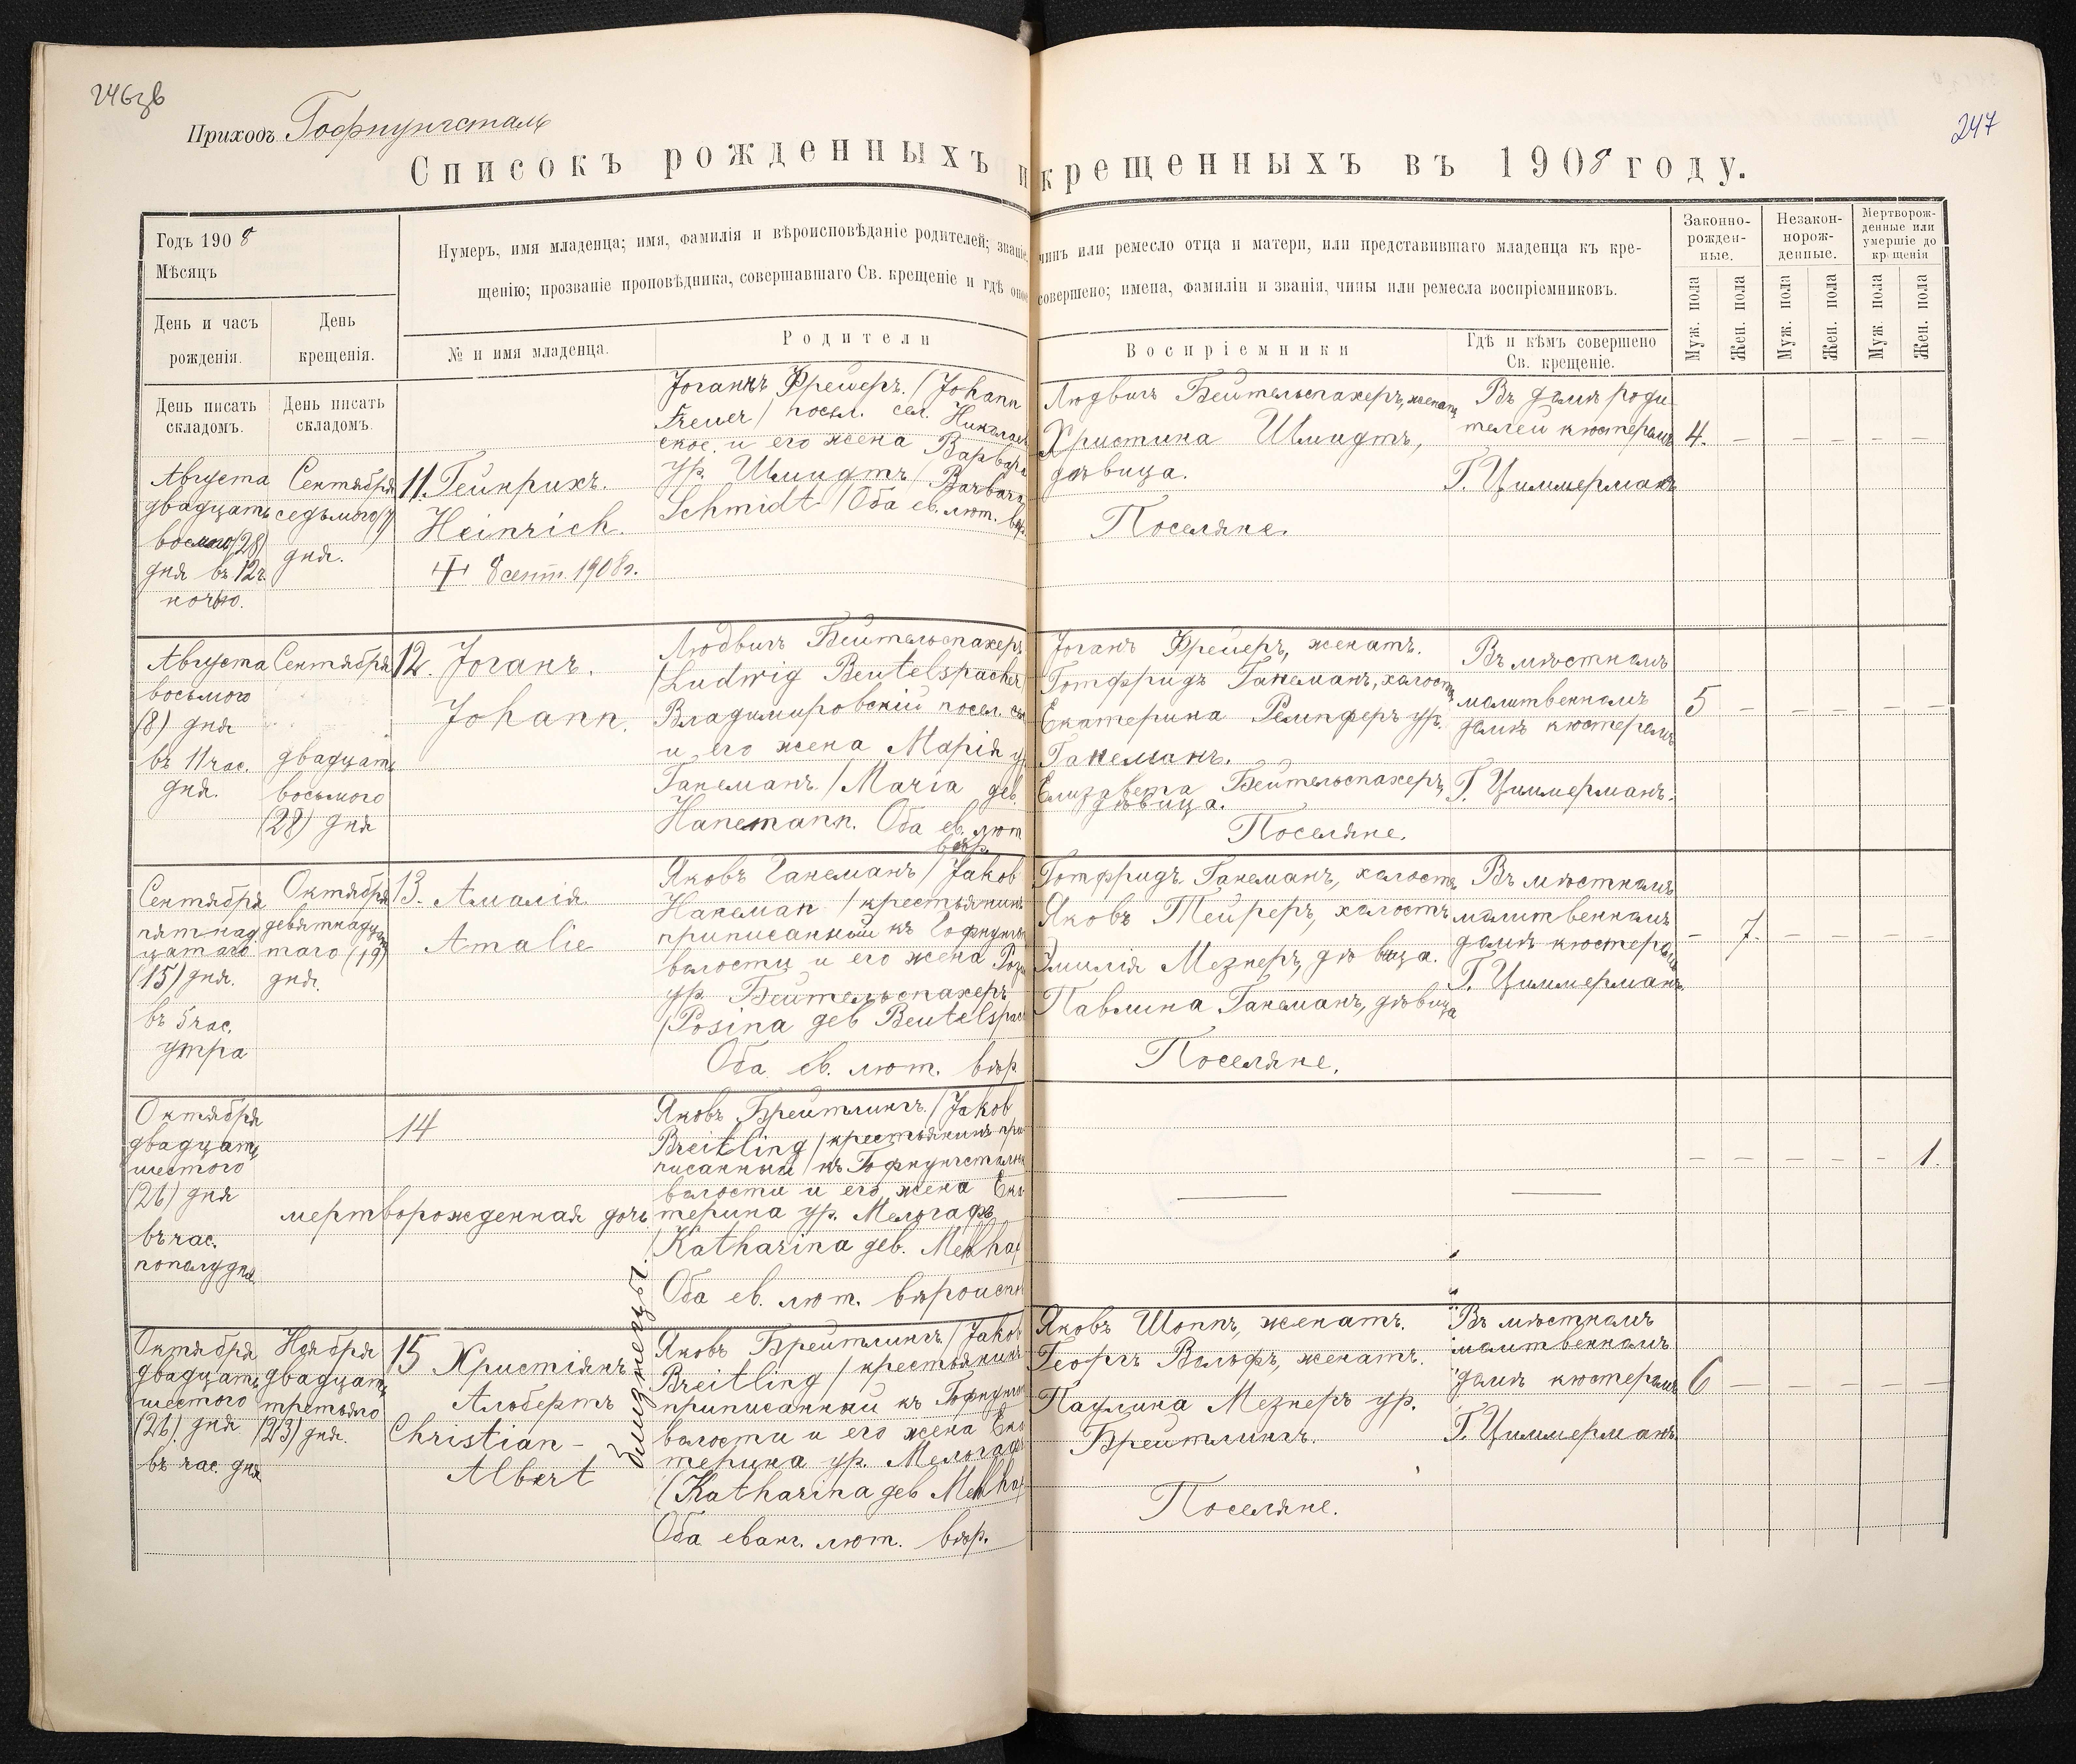 246зв
247
Приходъ Гофнунгсталь
Списокъ рожденныхъ и крещенныхъ въ 1908 году.
Годъ 1908
Мѣсяцъ
День и часъ
рожденія.
День
крещенія.
День писать
складомъ.
День писать
складомъ.
Нумеръ, имя младенца; имя, фамилія и вѣроисповѣданіе родителей; званіе, чинъ или ремесло отца и матери, или представившаго младенца къ кре-
щенію; прозваніе проповѣдника, совершавшаго Св. крещеніе и гдѣ оное совершено; имена, фамиліи и званія, чины или ремесла воспріемниковъ.
№ и имя младенца.
Родители
Воспріемники
Гдѣ и кѣмъ совершено
Св. крещеніе.
Законно-
рожден-
ные.
Незакон-
норож-
денные.
Мертворож-
денные или
умершіе до
крещенія
Муж. пола
Жен. пола
Муж. пола
Жен. пола
Муж. пола
Жен. пола
Августа
двадцать
восьмого (28)
дня въ 12 ч.
ночью.
Сентября
седьмого (7)
дня.
11. Гейнрихъ.
Heinrich.
8 сент. 1908 г.
Іоганнъ Фрейеръ. / Johann
Freuer / посел. сел. Николаев
ское. и его жена Варвара
ур. Шмидтъ / Barbara
Schmidt / Оба ев. лют. вѣр.
Людвигъ Бейтельспахеръ, женатъ
Христина Шмидтъ,
дѣвица.
Поселяне.
Въ домѣ роди-
телей кюстеромъ
Г. Циммерманъ
4. – – – – –
Августа
восьмого
(8) дня
въ 11 час.
дня.
Сентября
двадцать
восьмого
(28) дня
12. Іоганъ.
Johann.
Людвигъ Бейтельспахеръ
(Ludwig Beutelspacher)
Владимировскій посел. с
и его жена Марія ур
Ганеманъ / Maria geb.
Hanemann. Оба ев. лют
вѣр.
Іоганъ Фрейеръ, женатъ.
Готфридъ Ганеманъ, холостъ
Екатерина Ремпферъ ур.
Ганеманъ.
Елизавета Бейтельспахеръ,
дѣвица.
Поселяне.
Въ мѣстномъ
молитвенномъ
домѣ кюстеромъ
Г. Циммерманъ.
5 – – – – –
Сентября
пятнад
цатаго
(15) дня.
въ 5 час.
утра
Октября
девятнадца
таго (19)
дня.
13. Амалія
Amalie
Яковъ Ганеманъ / Jakob
Haneman / крестьянинъ
приписанный къ Гофнунгст
волости и его жена Роз
ур. Бейтельспахеръ
(Rosina geb Beutelspac
Оба ев. лют. вѣр
Готфридъ Ганеманъ, холостъ
Яковъ Тейреръ, холостъ
Эмилія Мезнеръ, дѣвица.
Павлина Ганеманъ, дѣвица
Поселяне.
Въ мѣстномъ
молитвенномъ
домѣ кюстеромъ
Г. Циммерманъ.
– 7. – – – –
Октября
двадцать
шестого
(26) дня
въ час.
пополудня
14
мертворожденная дочь
Яковъ Брейтлингъ. / Jakob
Breitling / крестьянинъ при
писанный къ Гофнунгсталь
волости и его жена Ека
терина ур. Мельгафъ
(Katharina geb. Mehlhaf
Оба ев. лют. вѣроисп
– – – – – 1.
близнецы.
Октября
двадцать
шестого
(26) дня
въ час. дня
Ноября
двадцать
третьяго
(23) дня.
15 Христіанъ
Альбертъ
Christian-
Albert
Яковъ Брейтлингъ / Jakob
Breitling / крестьянинъ
приписанный къ Гофнунгс
волости и его жена Ека
терина ур. Мельгафъ
(Katharina geb Mehlhaf
Оба еванг. лют. вѣр.
Яковъ Шоппъ, женатъ.
Георгъ Вольфъ, женатъ.
Паулина Мезнеръ ур.
Брейтлингъ.
Поселяне.
Въ мѣстномъ
молитвенномъ
домѣ кюстеромъ
Г. Циммерманъ
6 – – – – –